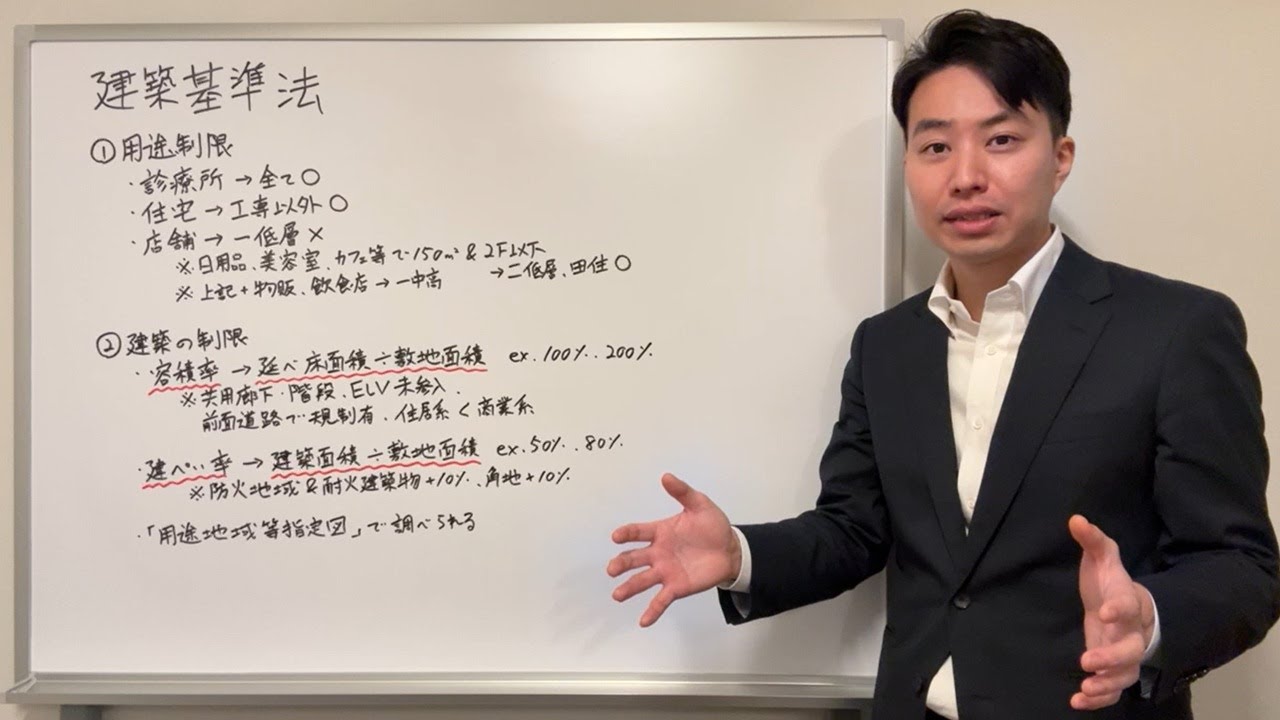 建築基準法
①用途制限
・診療所→全て〇
・住宅→工専以外〇
・店舗→一低層×
※日用品、美容室、カフェ等で150㎡&2F以下
→二低層、田住〇
※上記+物販、飲食店→一中高
②建築の制限
・容積率→延べ床面積÷敷地面積 ex.100%..200%
※共用廊下・階段、ELV未参入.
前面道路で規制有、住居系<商業系
・建ぺい率→建築面積÷敷地面積 ex.50%..80%
※防火地域&耐火建築物+10%、角地+10%
・「用途地域等指定図」で調べられる